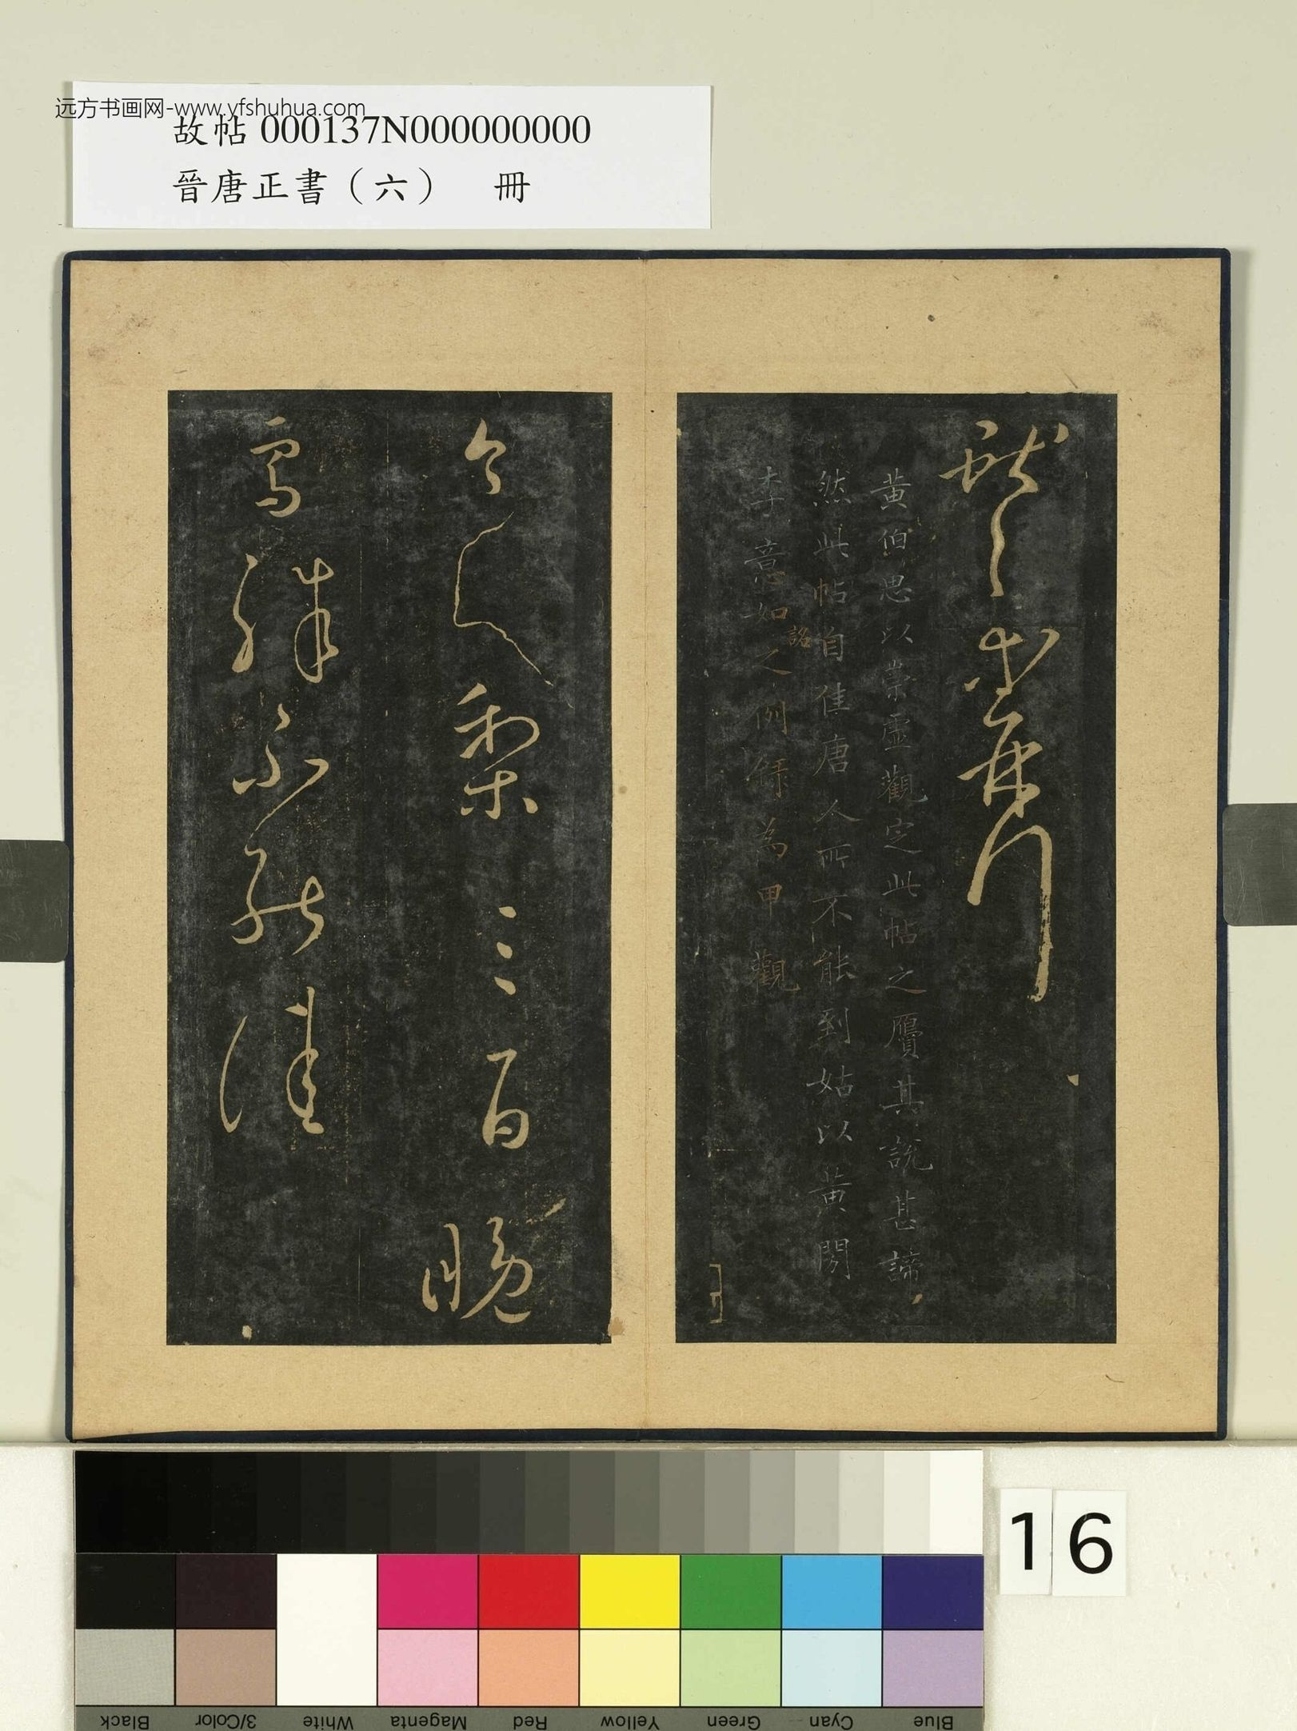 远方书画网-www.yfshuhua.com
故帖 000137N000000000
晉唐正書（六） 冊
獻之
黄伯思以崇虛觀定此帖之贋其說甚諦
然此帖自佳唐人所不能到姑以黄閣
李意如之例錄為甲觀
詺
今
梨三百晚
雪殊不能佳
16
Black
3/Color
White
Magenta
Red
Yellow
Green
Cyan
Blue